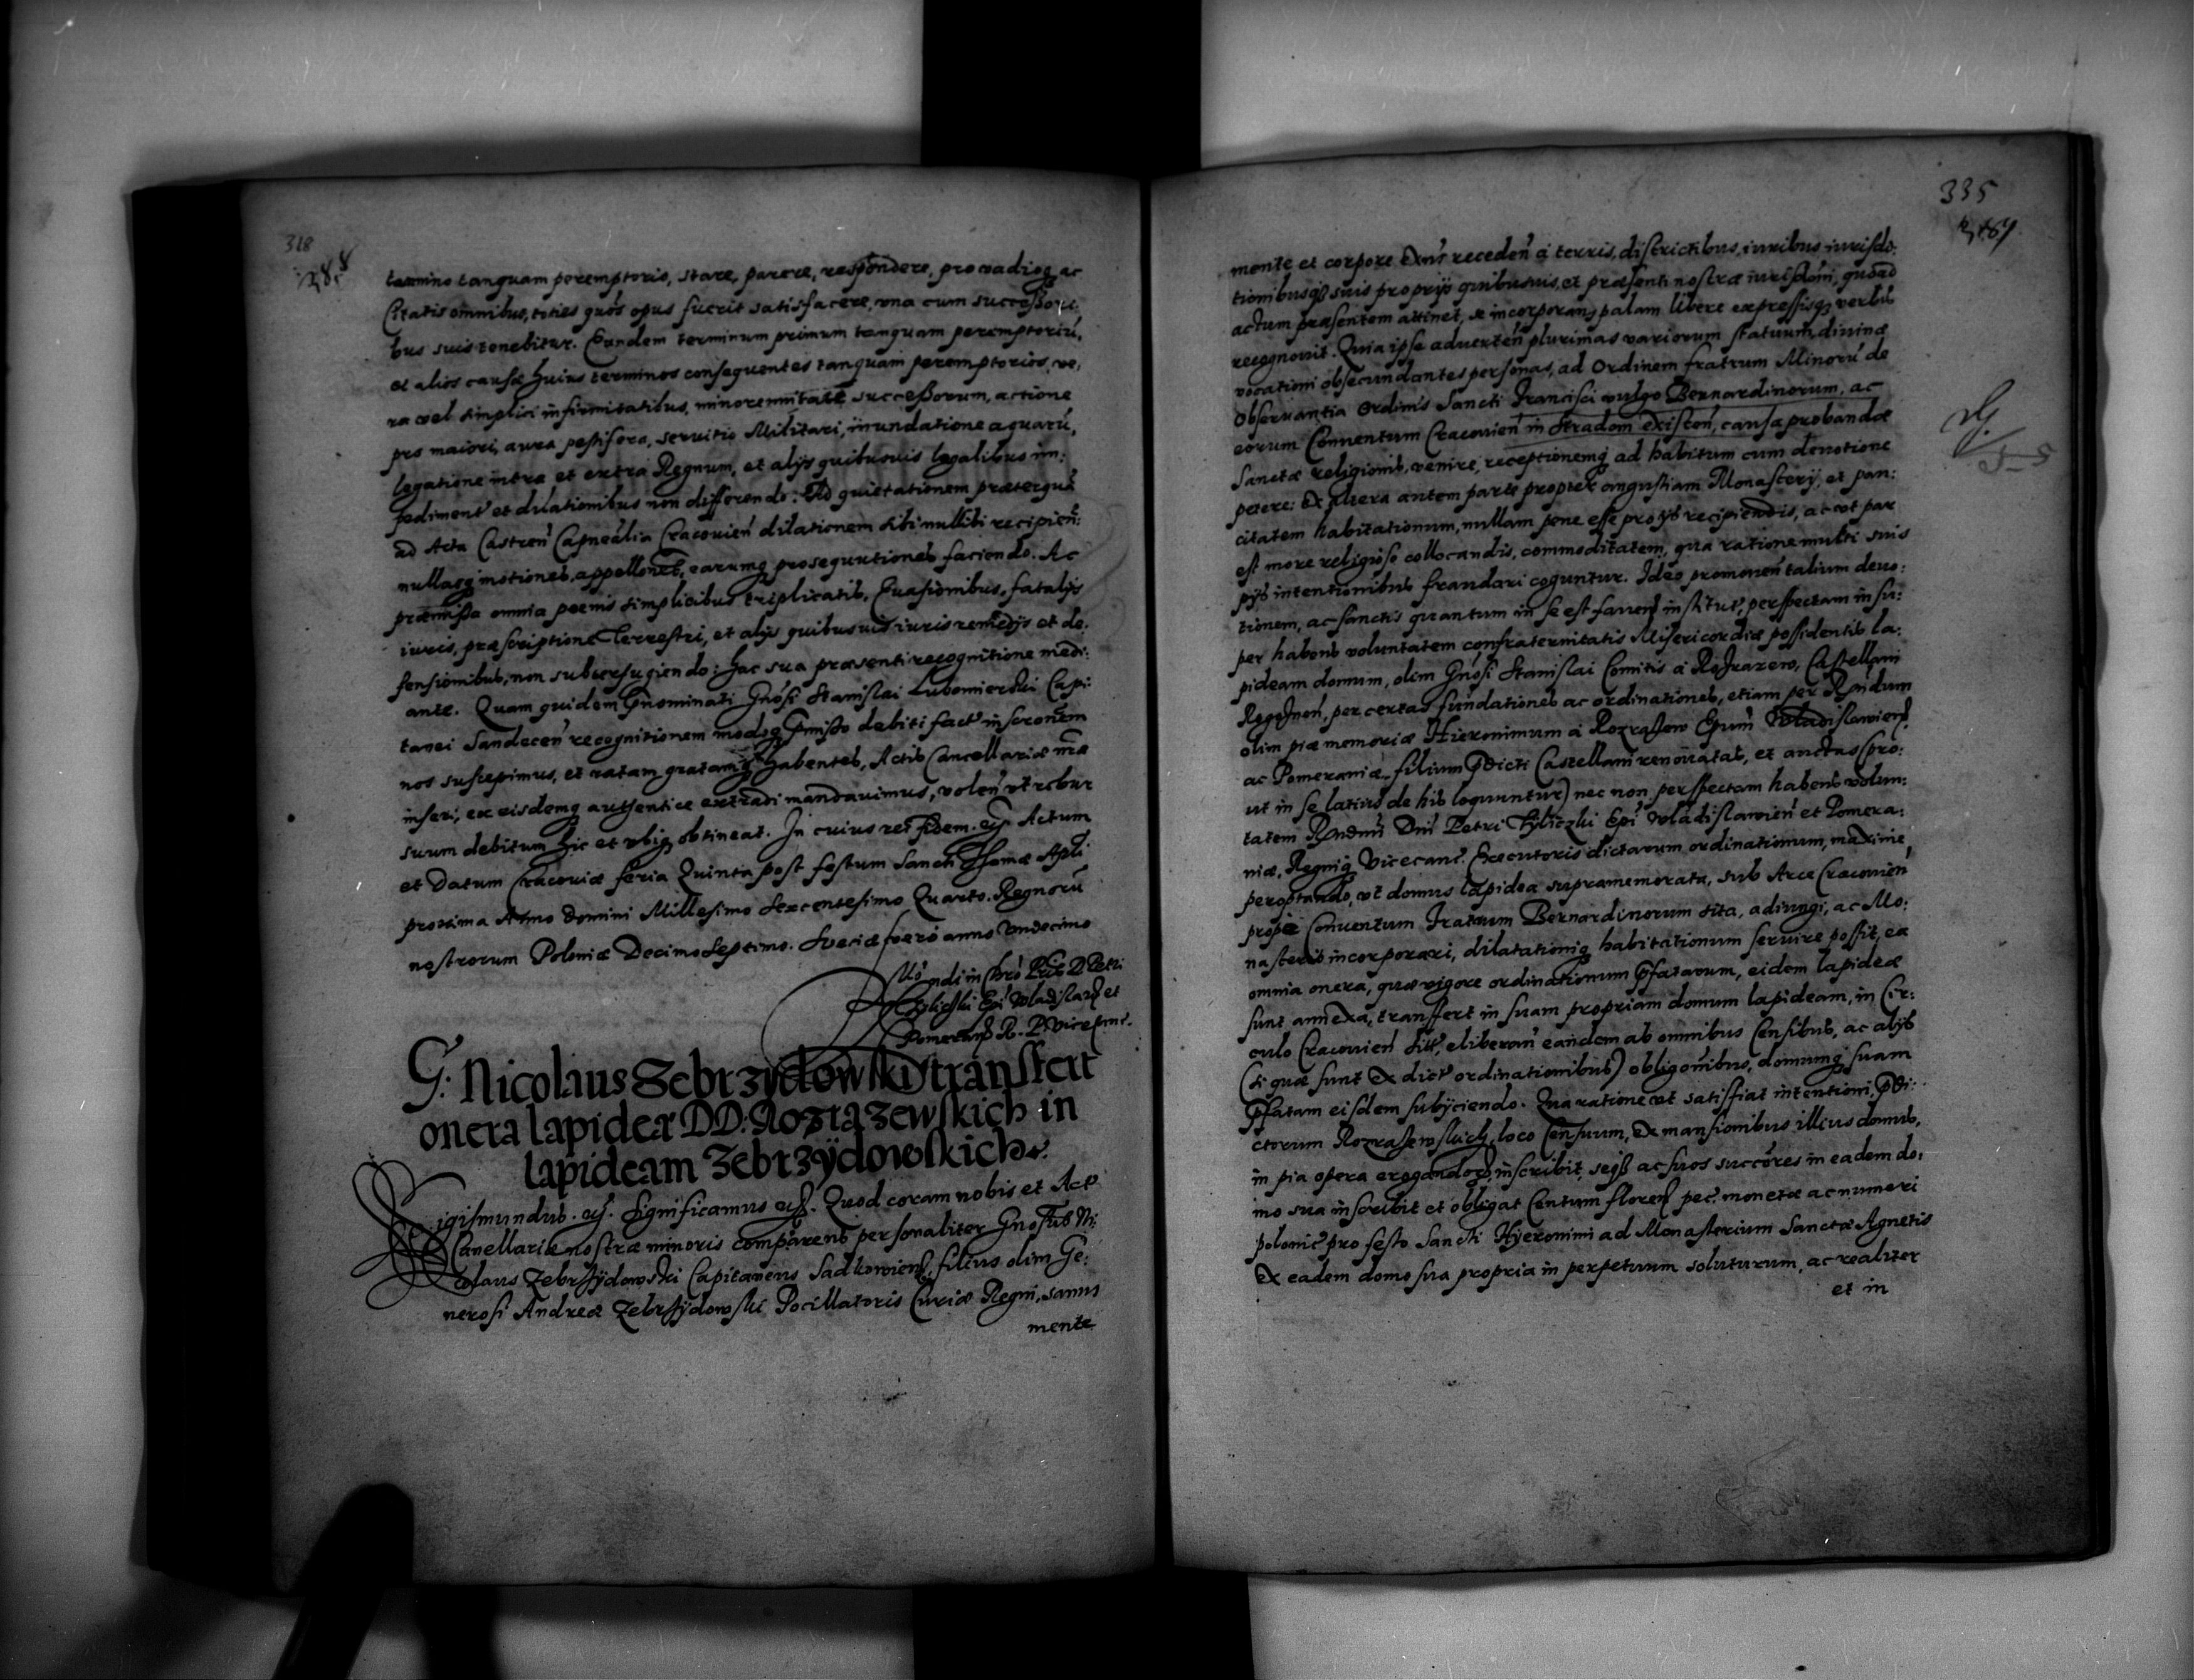 318
termino tanquam peremptorio, stare, parere, respondere, pro vadiog ac
Citatis omnibus, toties quos opus fuerit satisfacere, una cum successori
bus suis tenebitur. Eundem terminum primum tanquam peremptoriu,
et alios causæ huius terminos consequentes tanquam peremptorios, ve,
ra vel simplici infirmitatibus, minorennitate successorum, actione
pro maiori, aura pestifera, servitio Militari, inundatione aquaru,
legatione intra et extra Regnum, et alijs quibusvis legalibus im:
pediment et dilationibus non differendo: Ad quietationem præterqua
ad Acta Castren Capnealia Cracouien dilationem sibi nullibi recipien:
nullasq motiones, appellones, earumq prosequutiones faciendo. Ac
præmissa omnia poenis simplicibus triplicatis, Euasionibus, fatalijs
iuris, præscriptione Terrestri, et alijs quibusuis iuris remedijs et de,
fensionibus, non subterfugiendo: hac sua præsenti recognitione medi:
ante. Quam quidem pnominati Gnosi Stanislai Lubomierski Capi:
tanei Sandecen recognitionem modoq pmisso debiti fact inscronem
nos suscepimus, et ratam gratamq habentes, Actis Cancellariæ nræ
inseri, ex eisdemq authentice extradi mandauimus, volen vt robur
suum debitum hic et vbiq obtineat. In cuius rei fidem. etc. Actum
et Datum Cracouiæ feria Quinta post festum Sancti Thomæ Apli
proxima Anno Domini Millesimo Sexcentesimo Quarto. Regnoru
nostrorum Poloniæ Decimo Septimo. Sueciæ vero anno Vndecimo
Rndi in Chro Pris D. Petri
Tyliczki Epi Wladislauien et
Pomeran R. P. Vicecanc.
G. Nicolaus Zebrzydowski transfert
onera lapideæ DD. Rozrazewskich in
lapideam Zebrzÿdowskich.
Sigismundus. etc. Significamus etc. Quod coram nobis et Act
Canellariæ nostræ minoris comparens personaliter Gnosus Ni:
colaus Zebrzÿdowski Capitaneus Sadkowien, filius olim Ge:
nerosi Andreæ Zebrzÿdowski Pocillatoris Curiæ Regni, sanus
mente
335
mente et corpore Exns receden a terris, districtibus, iuribus iurisdo:
tionibusq suis proprijs quibusuis, et præsenti nostræ iurisdoni, quoad
actum præsentem attinet, se incorporans palam libere expressisq verbis
recognouit. Quia ipse aduerten plurimas variorum statuum, diuinæ
vocationi obsecundantes personas, ad Ordinem fratrum Minoru de
Obseruantia Ordinis Sancti Francisci vulgo Bernardinorum, ac
eorum Conuentum Cracouien in Stradom existen, causa probandæ
Sanctæ religionis, venire, receptionemq ad habitum cum deuotione
petere: Ex altera autem parte propter angustiam Monasterij, et pau:
citatem habitationum, nullam pene esse pro ijs recipiendis, ac vt par
est more religioso collocandis, commoditatem, qua ratione multi suis
pijs intentionibus fraudari coguntur. Ideo promouen talium deuo:
tionem, ac sanctis quantum in se est fauens institut, perspectam in su:
per habens voluntatem confraternitatis Misericordiæ possidentis la:
pideam domum, olim Gnosi Stanislai Comitis a Rozrazew, Castellani
Rogoznen, per certas fundationes ac ordinationes, etiam per Rndum
olim piæ memoriæ Hieronimum a Rozrazew Epum Wladislawien,
ac Pomeraniæ, filium pdicti Castellani renouatas, et auctas (pro:
ut in se latius de his loquuntur) nec non perspectam habens volun:
tatem Rndmi Dni Petri Tyliczki Epi Wladislawien et Pomera:
niæ, Regniq Vicecanc. Executoris dictarum ordinationum, maxime
peroptando, vt domus lapidea supramemorata, sub Arce Cracouien
prope Conuentum Fratrum Bernardinorum sita, adiungi, ac Mo:
nasterio incorporari, dilatationiq habitationum seruire possit, ea
omnia onera, quæ vigore ordinationum pfatarum, eidem lapideæ
sunt annexa, transfert in suam propriam domum lapideam, in Cir:
culo Cracouien sitt, eliberan eandem ab omnibus Censibus, ac alijs
(si quæ sunt ex dict ordinationibus) obligonibus, domumq suam
pfatam eisdem subijciendo. Qua ratione vt satisfiat intentioni, pdi:
ctorum Rozrazewskich, loco Censuum, ex mansionibus illius domus,
in pia opera erogandoq, inscribit, seq ac suos succores in eadem do:
mo sua inscribit et obligat Centum floren pec. monetæ ac numeri
polonic pro festo Sancti Hyeronimi ad Monasterium Sanctæ Agnetis
Ex eadem domo sua propria in perpetuum soluturum, ac realiter
et in